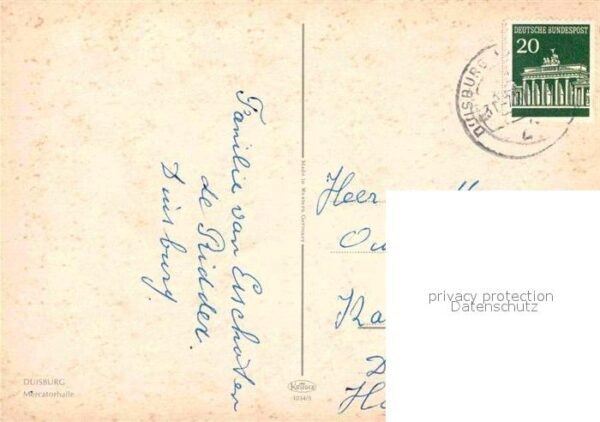 DEUTSCHE BUNDESPOST
20
DUISBURG
Familie van Esschoten
de Ridder.
Duisburg.
Made in Western Germany
Heer
Ou
Ka
D
privacy protection
Datenschutz
DUISBURG
Mercatorhalle
Krüger
1034/5